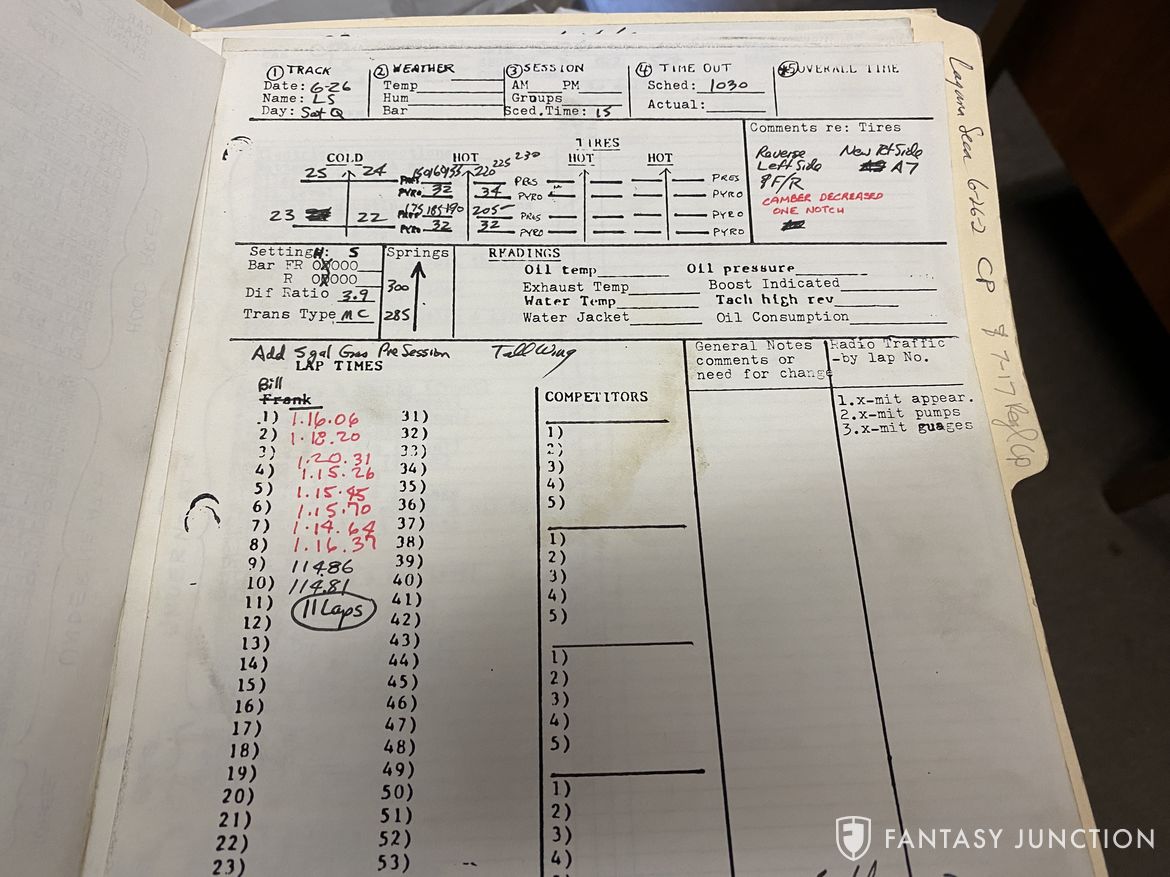 ① TRACK ② WEATHER ③ SESSION ④ TIME OUT #5 OVERALL TIME
Date: 6-26 Temp AM PM Sched: 1030
Name: LS Hum Groups
Day: Sat Q Bar Sced.Time: 15 Actual:
TIRES
COLD HOT HOT HOT
25 24 220 225 230 PRES PRES
PYRO 32 34 PYRO PYRO
23 22 175 185 190 205 PRES PRES
32 32 PYRO PYRO
Comments re: Tires
Reverse New Rt Side
Left Side A7
F/R
CAMBER DECREASED
ONE NOTCH
Setting: H S
Bar FR 0X000
R 0X000
Dif Ratio 3.9
Trans Type MC
Springs
300
285
READINGS
Oil temp Oil pressure
Exhaust Temp Boost Indicated
Water Temp Tach high rev
Water Jacket Oil Consumption
Add 5 gal Gas Pre Session Tall Wing
LAP TIMES
Bill
Frank
1) 1.16.06 31)
2) 1.18.20 32)
3) 1.20.31 33)
4) 1.15.26 34)
5) 1.15.45 35)
6) 1.15.70 36)
7) 1.14.64 37)
8) 1.16.37 38)
9) 11486 39)
10) 114.81 40)
11) 11 Laps 41)
12) 42)
13) 43)
14) 44)
15) 45)
16) 46)
17) 47)
18) 48)
19) 49)
20) 50)
21) 51)
22) 52)
23) 53)
COMPETITORS
1)
2)
3)
4)
5)
1)
2)
3)
4)
5)
1)
2)
3)
4)
5)
1)
2)
3)
4)
General Notes
comments or
need for change
Radio Traffic
-by lap No.
1.x-mit appear.
2.x-mit pumps
3.x-mit guages
Laguna Seca 6-26-2 CP
7-17 Reg CP
FANTASY JUNCTION